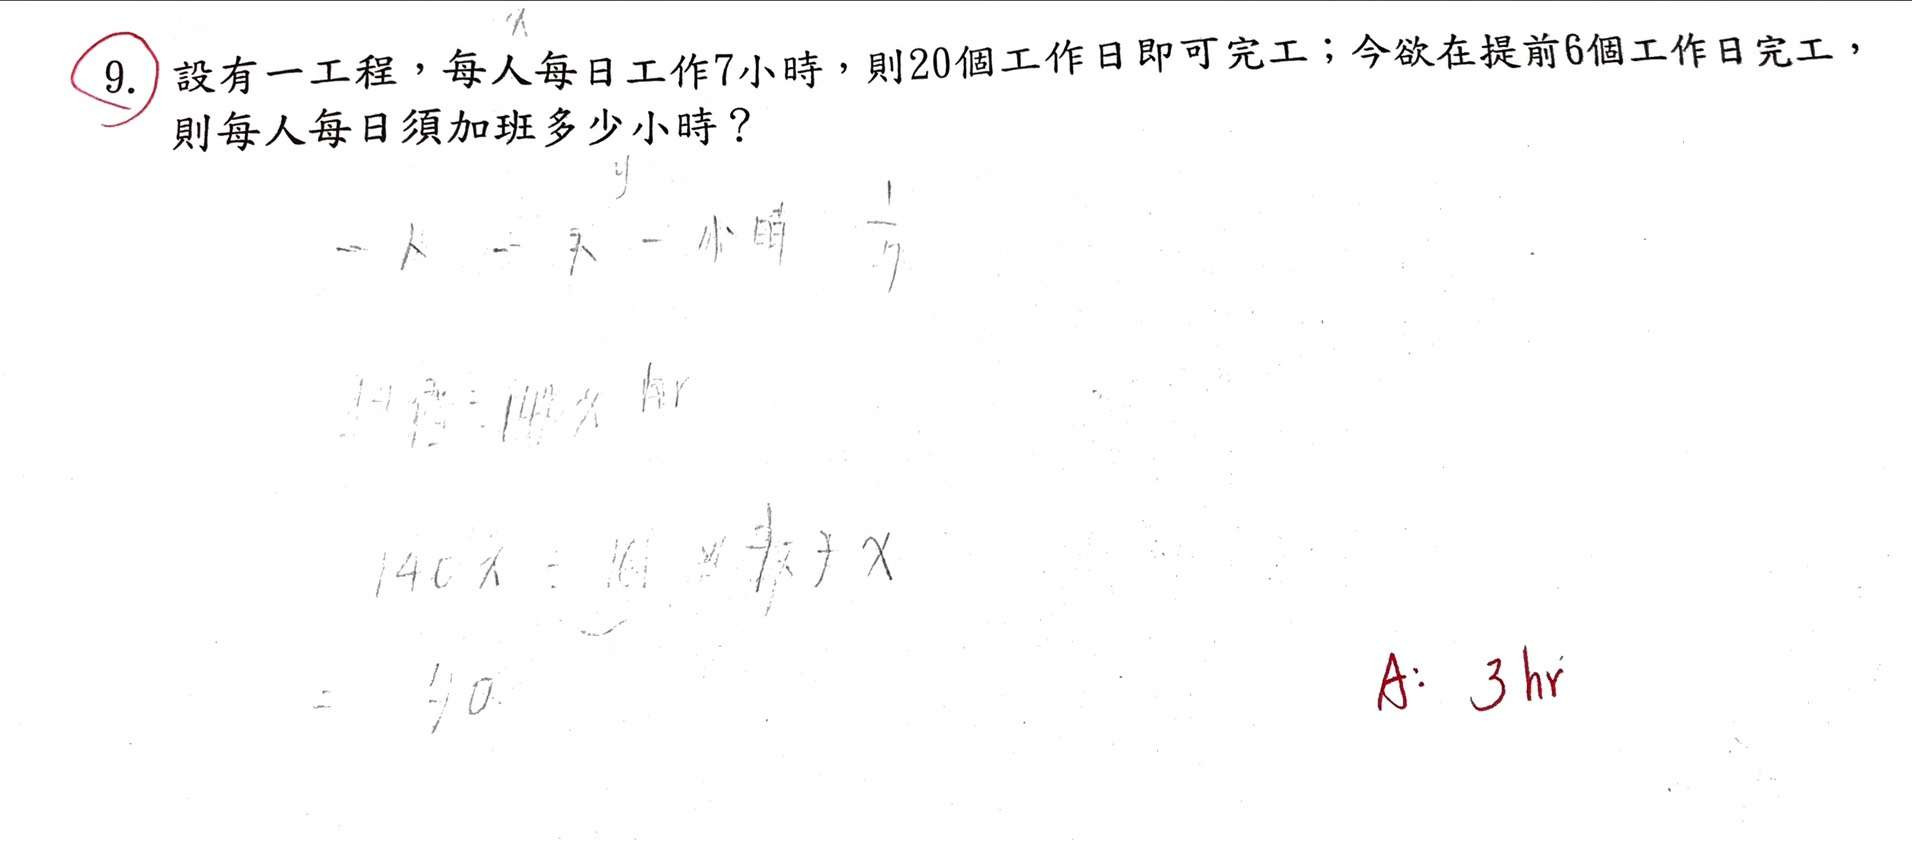 x
9. 設有一工程，每人每日工作7小時，則20個工作日即可完工；今欲在提前6個工作日完工，
則每人每日須加班多少小時？
y
一人 一天 一小時 1/7
140x hr
140x =
A: 3 hr